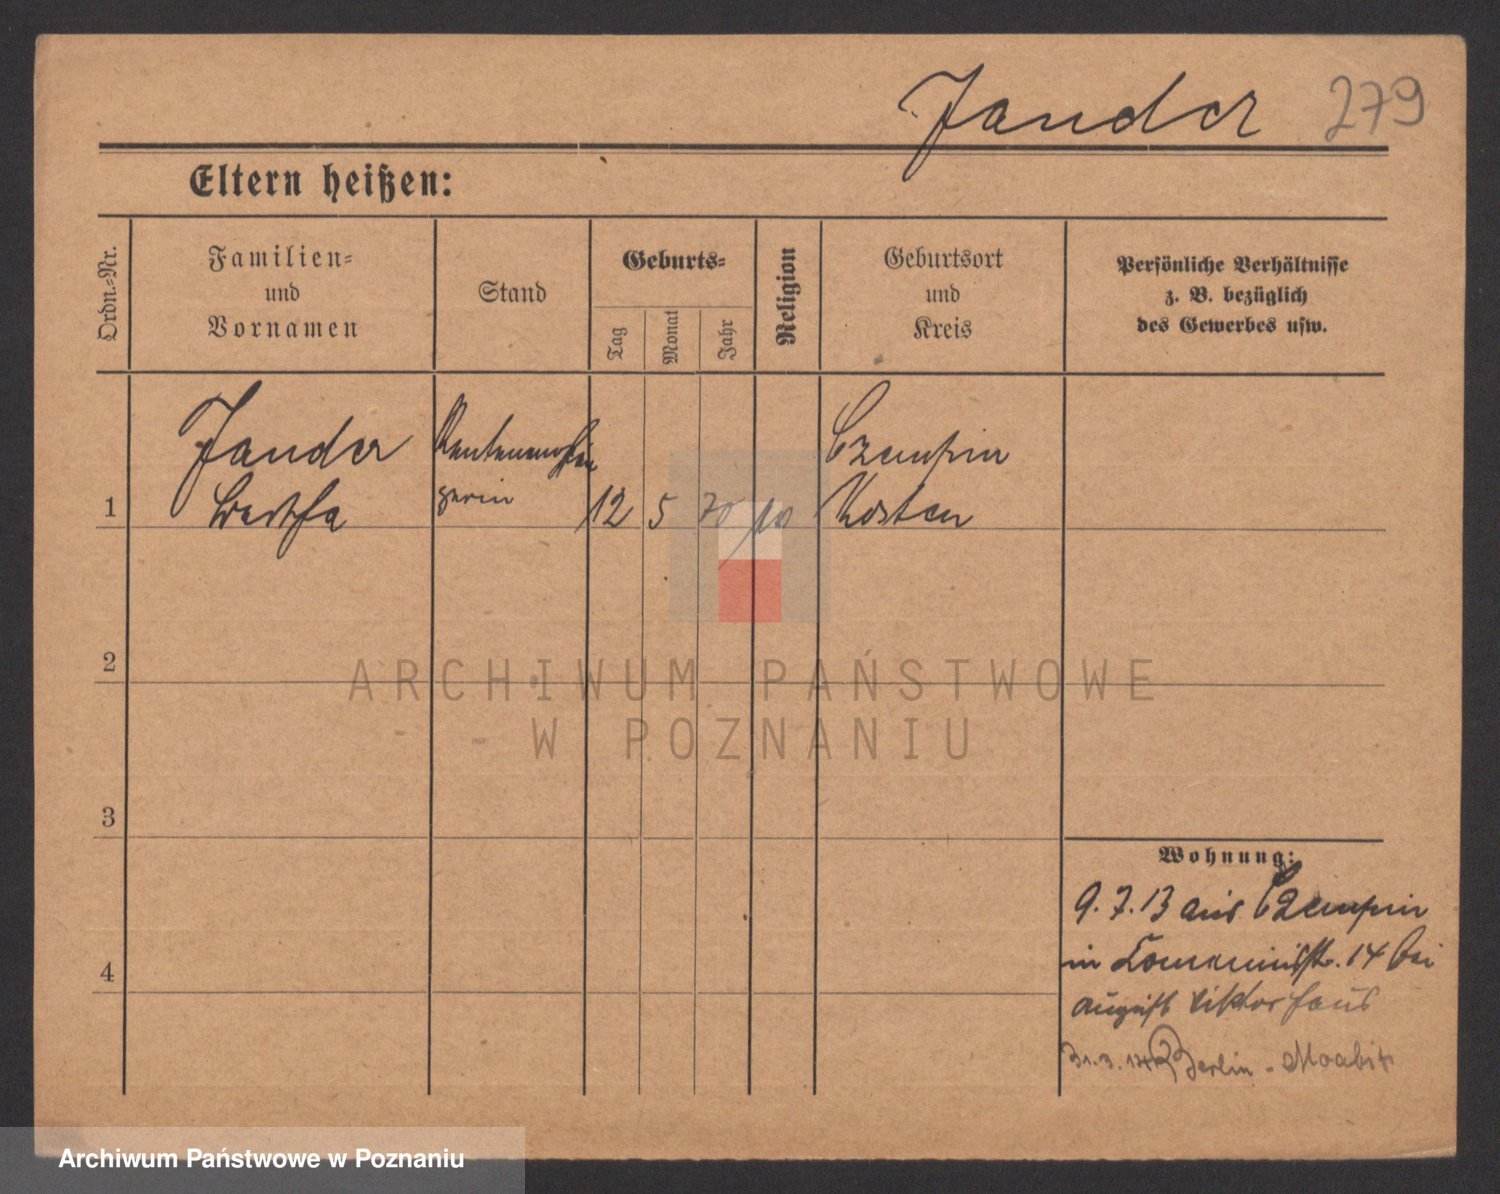 Jander 279
Eltern heißen:
Ordn.-Nr.
Familien-
und
Vornamen
Stand
Geburts-
Tag
Monat
Jahr
Religion
Geburtsort
und
Kreis
Persönliche Verhältnisse
z. B. bezüglich
des Gewerbes usw.
Jander
Czempin
1 Bertha 12 5 70 Kosten
2
ARCHIWUM PAŃSTWOWE
W POZNANIU
3
Wohnung:
9.7.13 aus Czempin
in 14 bei
4
August Viktor Haus
31.3.14 Berlin - Moabit
Archiwum Państwowe w Poznaniu